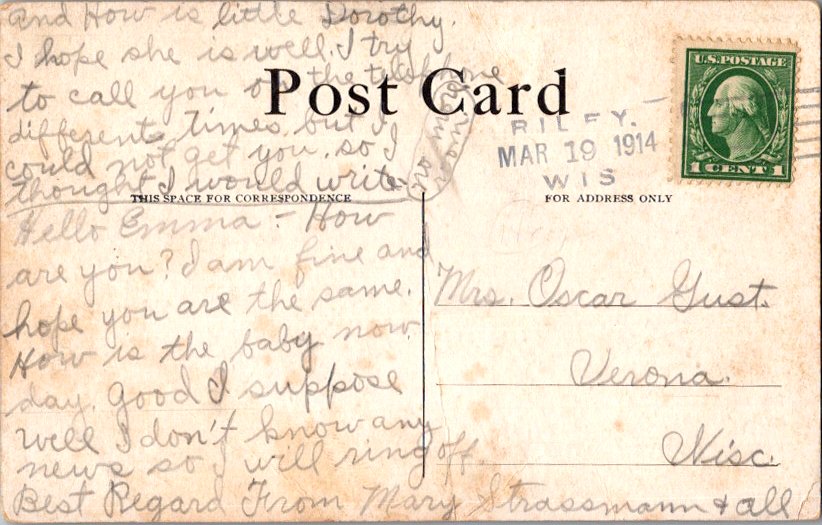 and How is little Dorothy.
I hope she is well. I try
to call you on the telephone
different times but I
could not get you. so I
thought I would write
Post Card
RILEY.
MAR 19 1914
WIS
U.S. POSTAGE
1 CENT 1
THIS SPACE FOR CORRESPONDENCE
FOR ADDRESS ONLY
Hello Emma - How
are you? I am fine and
hope you are the same.
How is the baby now
day. good I suppose
well I don't know any
news so I will ring off.
Best Regard From Mary Strassmann + all
Mrs. Oscar Gust.
Verona.
Wisc.